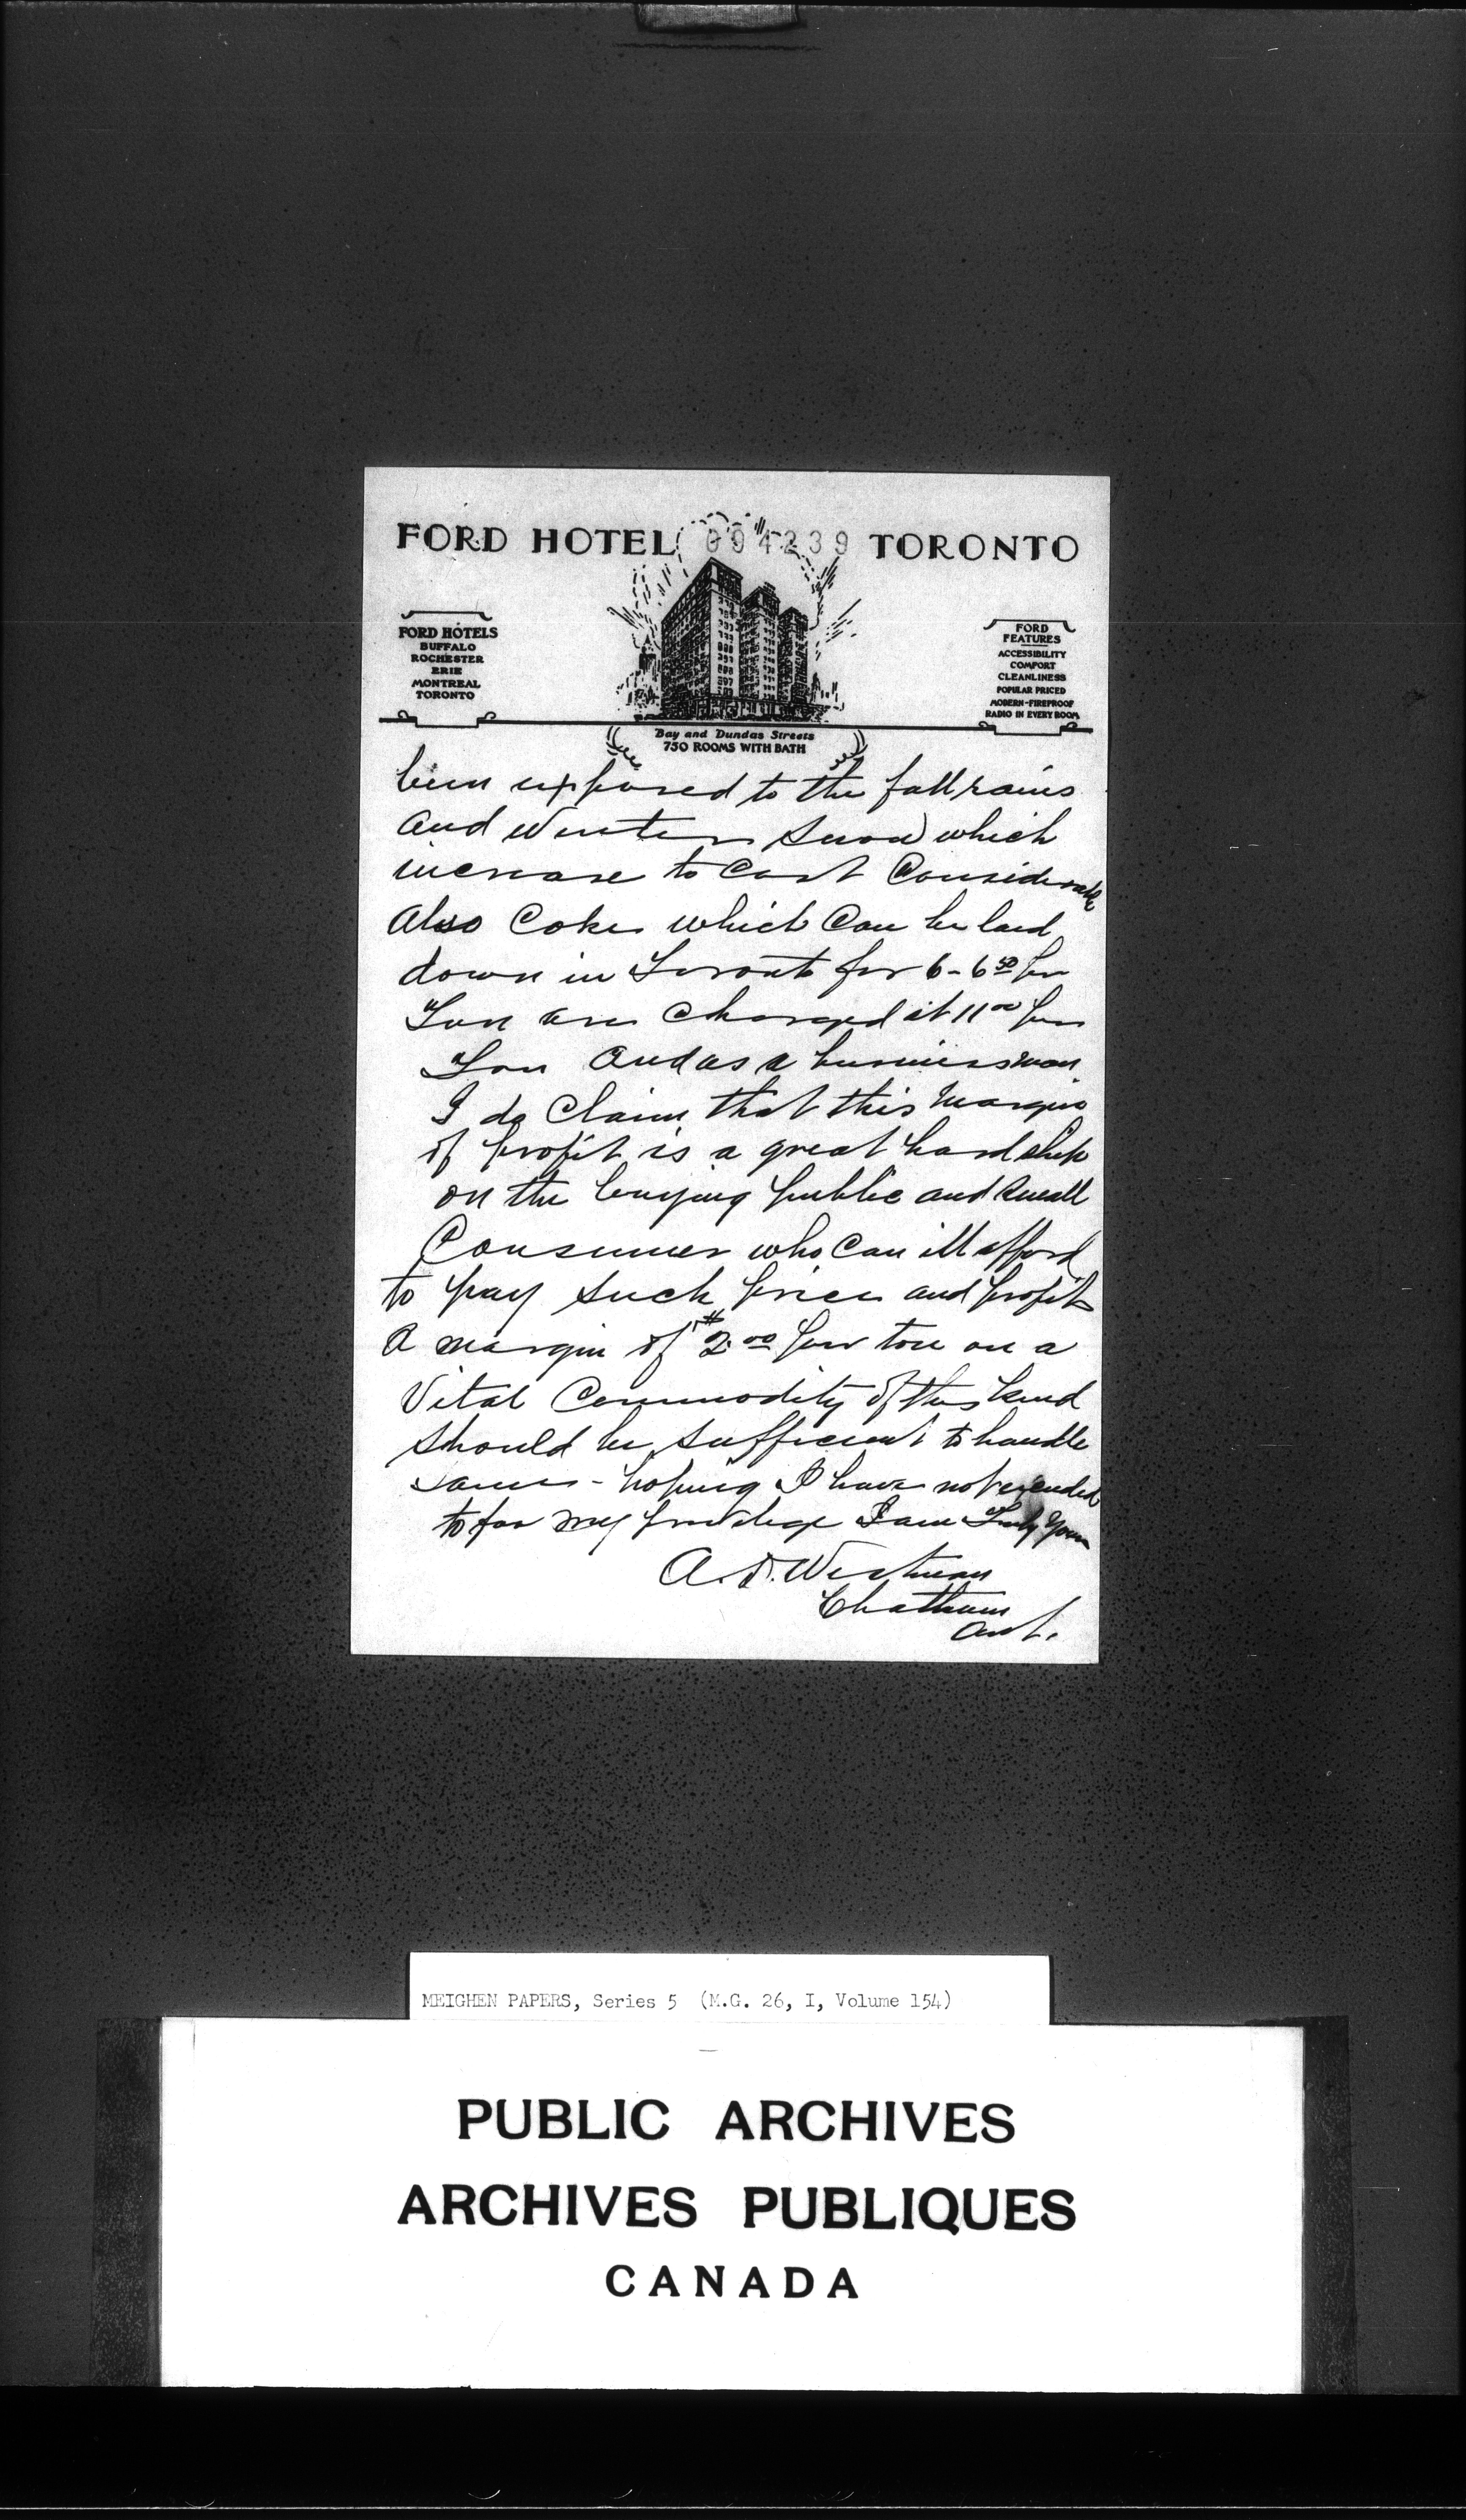 FORD HOTEL 094239 TORONTO
FORD HOTELS
BUFFALO
ROCHESTER
ERIE
MONTREAL
TORONTO
FORD
FEATURES
ACCESSIBILITY
COMFORT
CLEANLINESS
POPULAR PRICED
MODERN-FIREPROOF
RADIO IN EVERY ROOM
Bay and Dundas Streets
750 ROOMS WITH BATH
been exposed to the fall rains
and Winter Snow which
increase to cost Considerable
Also Coke which Can be laid
down in Toronto for 6 - 6 50 per
Ton are Charged at 11 00 per
Ton And as a businessman
I do Claim that this Margin
of profit is a great hardship
on the buying public and Small
Consumer who Can ill afford
to pay such prices and profits
A margin of $2.00 per ton on a
Vital Commodity of this kind
should be sufficient to handle
same - hoping I have not
to far my privilege I am Truly Yours
A. D. Westman
Chatham
Ont.
MEIGHEN PAPERS, Series 5 (M.G. 26, I, Volume 154)
PUBLIC ARCHIVES
ARCHIVES PUBLIQUES
CANADA